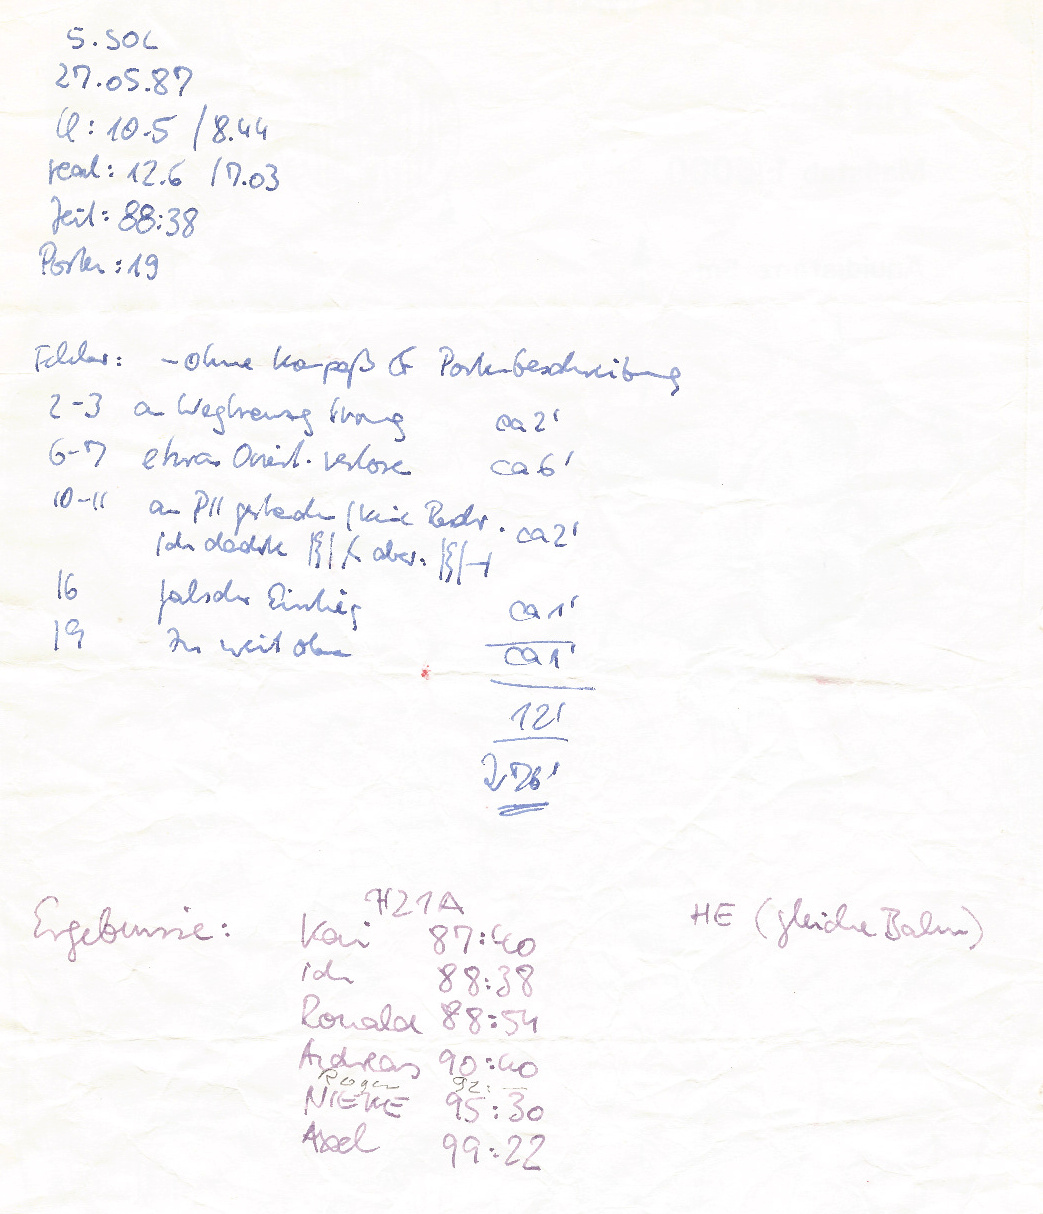 5. SOL
27.05.87
: 10.5 / 8.44
real: 12.6 / 7.03
Zeit: 88:38
Posten: 19
Fehler: - ohne Kompaß & Postenbeschreibung
2-3 an Wegkreuzung ca 2'
6-7 etwas Orient. verlore ca 6'
10-11 an P11 gestanden (keine Beschr. ca 2'
ich dachte aber.
16 falscher Einstieg ca 1'
19 zu weit oben ca 1'
12'
76'
H21A
Ergebnisse: Kai 87:40 HE (gleiche Bahn)
ich 88:38
Ronald 88:54
Andreas 90:40
Roger 92:
NIEKE 95:30
Axel 99:22